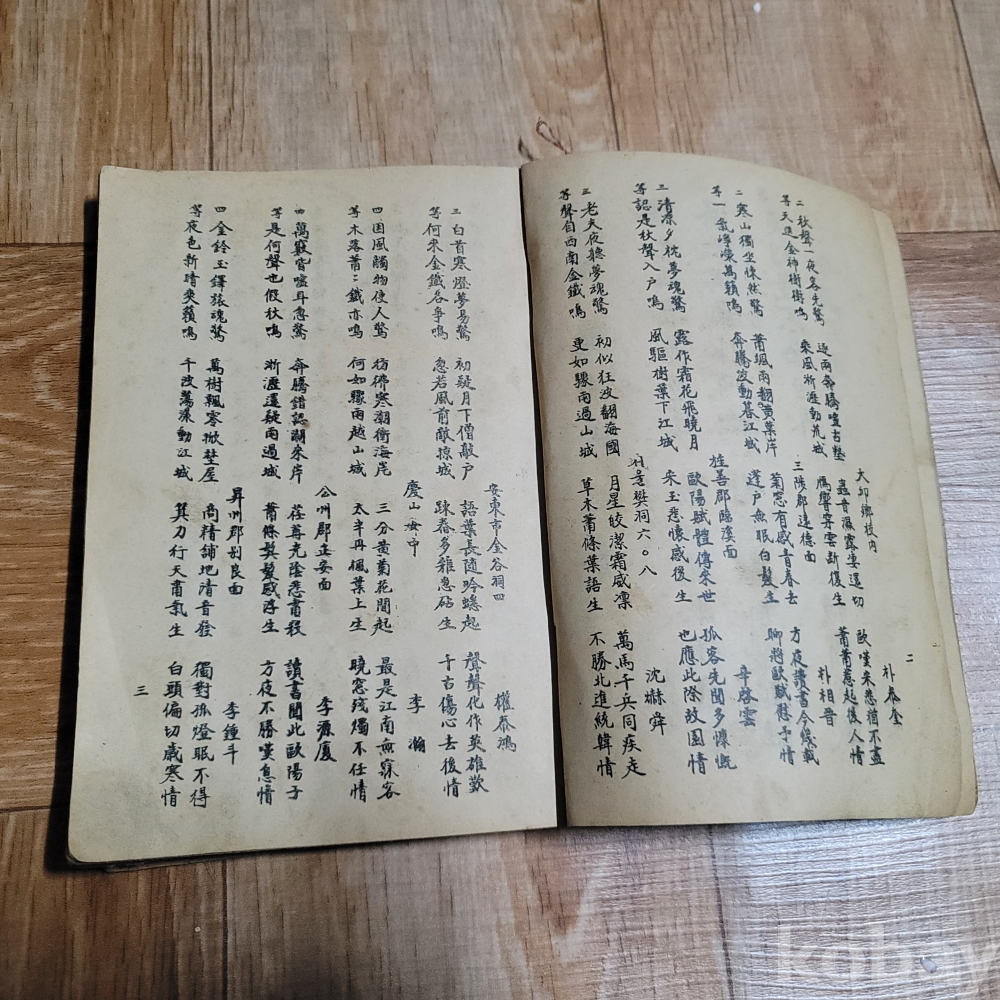 二
大邱鄉校內 朴泰金
二 秋聲一夜客先驚 逐雨奔騰喧古壑 蟲音濕露安還切 歐嘆未悲猶不盡
等 天遣金神樹樹鳴 乘風淅瀝動荒城 鴈響穿雲斷復生 蕭蕭惹起後人情
三陟郡遠德面 朴相晋
二 寒山獨坐悚然驚 蕭颯雨翻黃葉岸 菊窓有感青春去 方夜讀書今緩軾
等 一氣崢嶸萬籟鳴 奔騰波動暮江城 蓬戶無眠白髮生 聊將歐賦慰予情
旌善郡臨溪面 辛啓雲
三 清凉夕枕夢魂驚 露作霜花飛曉月 歐陽賦體傳來世 孤客先聞多慷慨
等 認是秋聲入戶鳴 風驅樹葉下江城 宋玉悲懷感後生 也應此除故園情
서울樊洞六○八 沈櫹舜
三 老夫夜聽夢魂驚 初似狂波翻海國 月星皎潔霜威凛 萬馬千兵同疾走
等 聲自西南金鐵鳴 更如驟雨過山城 草木蕭條葉語生 不勝北進統韓情
安東市金谷洞四 權泰鴻
三 白首寒燈夢易驚 初疑月下僧敲户 語葉長随吟蟋起 聲聲化作英雄歎
等 何來金鐵各爭鳴 忽若風前敵掠城 踈眷多雜急砧生 千古傷心去後情
慶山女中 李瀚
四 因風觸物使人驚 彷彿寒潮衝海㟁 三分黄菊花間起 最是江南無寐客
等 木落蕭蕭鐵亦鳴 何如驟雨越山城 太半丹楓葉上生 曉窓残燭不任情
公州郡正安面 李源廈
四 萬竅皆噓耳忽驚 奔騰錯認潮來岸 荏苒光陰悲書殺 讀書聞此歐陽子
等 是何聲也假秋鳴 淅瀝還疑雨過城 蕭條鬓髮感浮生 方夜不勝嘆息情
昇州郡別良面 李鍾斗
四 金鈴玉鐸旅魂驚 萬樹飄零掀埜屋 商精舖地清音發 獨對孤燈眠不得
等 夜色新晴爽籟鳴 千波蕩漾動江城 箕刀行天肅氣生 白頭偏切歲寒情
三